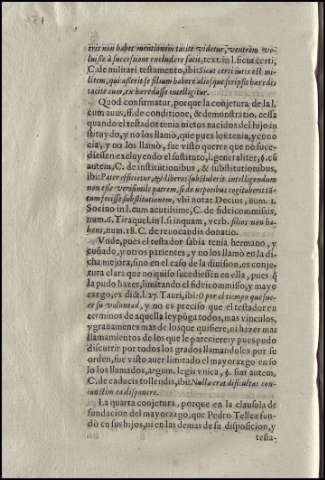 tris non habet mentionem tacite videtur, ventrem vo-
luisse à successione excludere facit, text. in l. sicut certi,
C. de militari testamento, ibi: Sicut certi iuris est mi-
litem, qui asserit se filium habere aliosque scripsit hæredes
tacite eum, ex hæredasse intelligitur.
Quod confirmatur, porque la conjetura, de la l.
cum auus, ff. de conditione, & demonstratio. cessa
quando el testador tenia nietos nacidos del hijo in
stituydo, y no los llamò, que pues los tenia, y cono
cia, y no los llamò, fue visto querer que no suce-
diessen excluyendo el sustituto, l. generaliter, §. cū
autem, C. de institutionibus, & substitutionibus,
ibi: Pater efficietur, & liberos subtulerit intelligendum
non esse verisimile patrem, si de nepotibus cogitauerit tā-
tum fecisse substitutionem, vbi notat Decius, num. 1.
Socino in l. cum acutissime, C. de fideicommissis,
num. 6. Tiraquel. in l. si inquam, verb. filios non ha-
bens, num. 18. C. de reuocandis donatio.
Vnde, pues el testador sabia tenia hermano, y
cuñado, y otros parientes, y no los llamò en la di-
cha mejora, sino en el caso de la diuision, es conje-
ctura clara que no quiso sucediessen en ella, pues q̃
la pudo hazer, limitando el fideicommisso, y mayo
razgo, ex dict. l. 27. Tauri, ibi: O por el tiempo que fue-
re su voluntad, y no es preciso que el testador en
terminos de aquella ley põga todos, mas vinculos,
y grauamenes mas de los que quisiere, ni hazer mas
llamamientos de los que le pareciere: y pues pudo
discurrir por todos los grados llamandoles por su
orden, fue visto auer limitado el mayorazgo en so
lo los llamados, argum. legis vnica, §. sin autem,
C. de caducis tollendis, ibi: Nulla erat dificultas con-
iunctim ea disponere.
La quarta conjetura, porque en la clausula de
fundacion del mayorazgo, que Pedro Tellez fun-
dò en sus hijos, ni en las demas de su disposicion, y
testa-